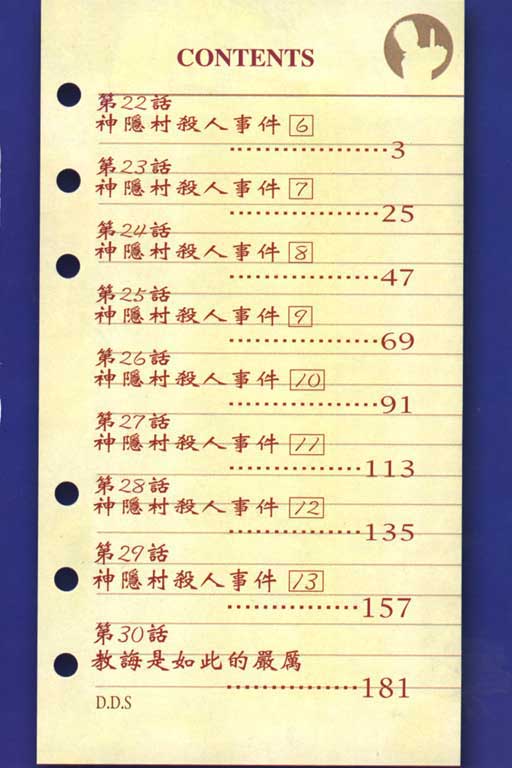 CONTENTS
第22話
神隱村殺人事件 6
3
第23話
神隱村殺人事件 7
25
第24話
神隱村殺人事件 8
47
第25話
神隱村殺人事件 9
69
第26話
神隱村殺人事件 10
91
第27話
神隱村殺人事件 11
113
第28話
神隱村殺人事件 12
135
第29話
神隱村殺人事件 13
157
第30話
教誨是如此的嚴厲
181
D.D.S